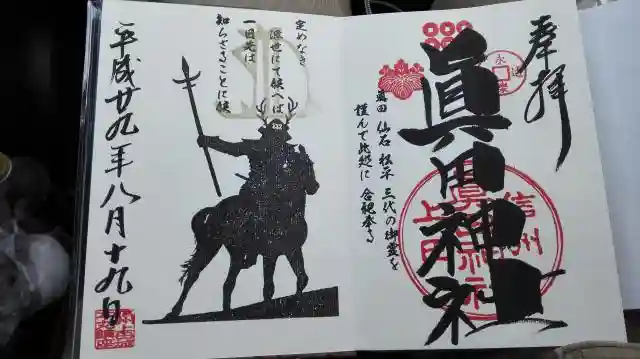 奉拝
眞田神社
信州
上田
眞田神社
真田 仙石 松平 三代の御霊を
謹んで此処に 合祀奉る
定めなき
浮世にて候へば
一日先は
知らざることに候
平成廿九年八月十九日